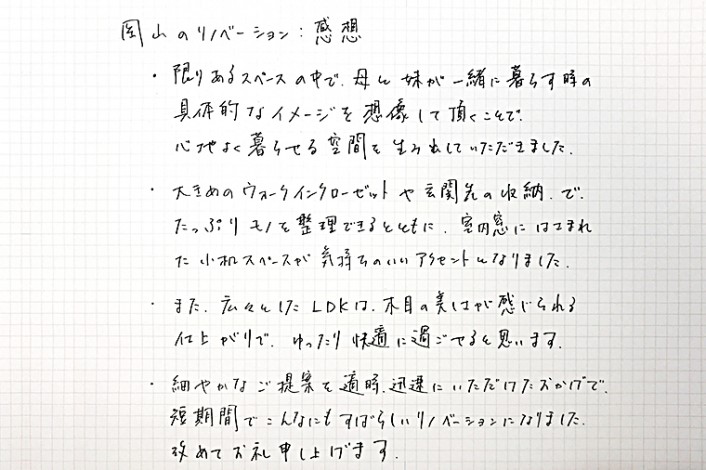 岡山のリノベーション：感想
・限りあるスペースの中で、母と妹が一緒に暮らす時の
具体的なイメージを想像して頂くことで、
心地よく暮らせる空間を生み出していただきました。
・大きめのウォークインクローゼットや玄関先の収納、で、
たっぷりモノを整理できるとともに、室内窓にはさまれ
た小机スペースが気持ちのいいアクセントとなりました。
・また、広々としたLDKは、木目の美しさが感じられる
仕上がりで、ゆったり快適に過ごせると思います。
・細やかなご提案を適時、迅速にいただけたおかげで、
短期間でこんなにもすばらしいリノベーションになりました。
改めてお礼申し上げます。